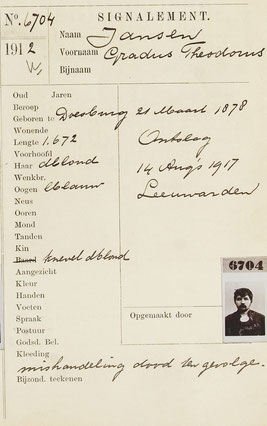 No. 6704 SIGNALEMENT.
1912 Naam Jansen
Voornaam Gradus Theodorus
Bijnaam
Oud Jaren
Beroep
Geboren te Doesburg 21 Maart 1878
Wonende
Lengte 1.672 Ontslag
Voorhoofd
Haar dblond 14 Aug's 1917
Wenkbr.
Oogen blauw Leeuwarden
Neus
Ooren
Mond
Tanden
Kin
Baard knevel dblond
Aangezicht 6704
Kleur
Handen
Voeten
Spraak Opgemaakt door
Postuur
Godsd. Bel.
Kleeding
mishandeling dood ten gevolge.
Bijzond. teekenen